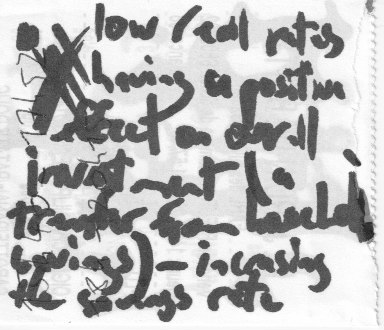 low / real rates
having a positive
effect on overall
investment (via
transfer from household
savings) — increasing
the savings rate